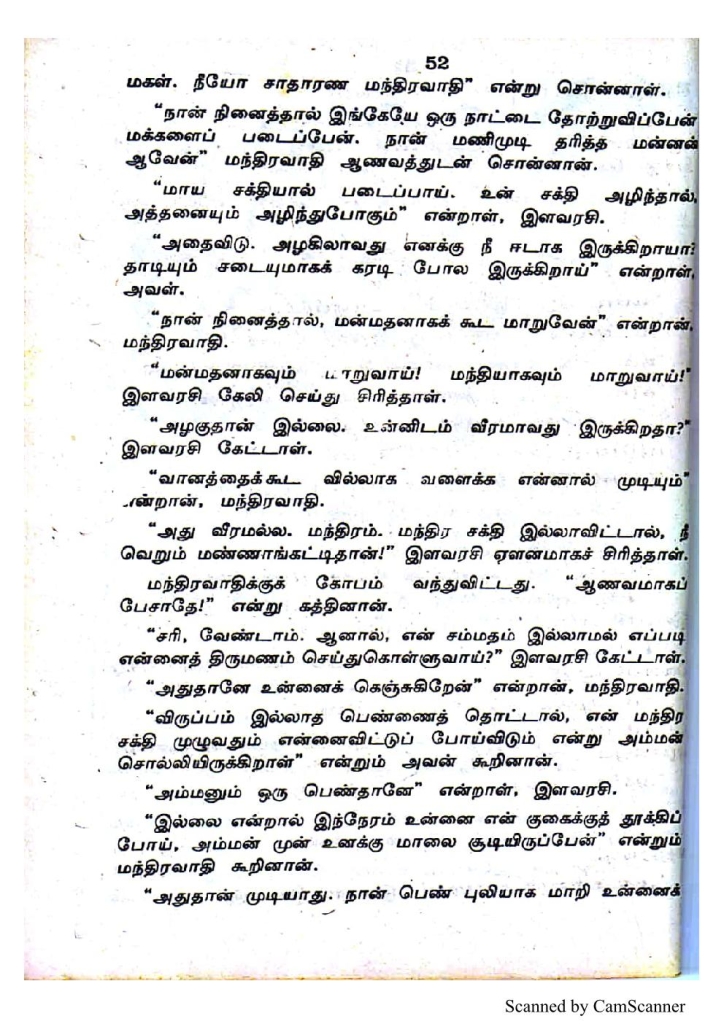 52
மகள். நீயோ சாதாரண மந்திரவாதி" என்று சொன்னாள்.
"நான் நினைத்தால் இங்கேயே ஒரு நாட்டை தோற்றுவிப்பேன்
மக்களைப் படைப்பேன். நான் மணிமுடி தரித்த மன்னன்
ஆவேன்" மந்திரவாதி ஆணவத்துடன் சொன்னான்.
"மாய சக்தியால் படைப்பாய். உன் சக்தி அழிந்தால்,
அத்தனையும் அழிந்துபோகும்" என்றாள், இளவரசி.
"அதைவிடு. அழகிலாவது எனக்கு நீ ஈடாக இருக்கிறாயா?
தாடியும் சடையுமாகக் கரடி போல இருக்கிறாய்" என்றாள்,
அவள்.
"நான் நினைத்தால், மன்மதனாகக் கூட மாறுவேன்" என்றான்,
மந்திரவாதி.
"மன்மதனாகவும் மாறுவாய்! மந்தியாகவும் மாறுவாய்!"
இளவரசி கேலி செய்து சிரித்தாள்.
"அழகுதான் இல்லை. உன்னிடம் வீரமாவது இருக்கிறதா?"
இளவரசி கேட்டாள்.
"வானத்தைக்கூட வில்லாக வளைக்க என்னால் முடியும்"
என்றான், மந்திரவாதி.
"அது வீரமல்ல. மந்திரம். மந்திர சக்தி இல்லாவிட்டால், நீ
வெறும் மண்ணாங்கட்டிதான்!" இளவரசி ஏளனமாகச் சிரித்தாள்.
மந்திரவாதிக்குக் கோபம் வந்துவிட்டது. "ஆணவமாகப்
பேசாதே!" என்று கத்தினான்.
"சரி, வேண்டாம். ஆனால், என் சம்மதம் இல்லாமல் எப்படி
என்னைத் திருமணம் செய்துகொள்ளுவாய்?" இளவரசி கேட்டாள்.
"அதுதானே உன்னைக் கெஞ்சுகிறேன்" என்றான், மந்திரவாதி.
"விருப்பம் இல்லாத பெண்ணைத் தொட்டால், என் மந்திர
சக்தி முழுவதும் என்னைவிட்டுப் போய்விடும் என்று அம்மன்
சொல்லியிருக்கிறாள்" என்றும் அவன் கூறினான்.
"அம்மனும் ஒரு பெண்தானே" என்றாள், இளவரசி.
"இல்லை என்றால் இந்நேரம் உன்னை என் குகைக்குத் தூக்கிப்
போய், அம்மன் முன் உனக்கு மாலை சூடியிருப்பேன்" என்றும்
மந்திரவாதி கூறினான்.
"அதுதான் முடியாது. நான் பெண் புலியாக மாறி உன்னைக்
Scanned by CamScanner